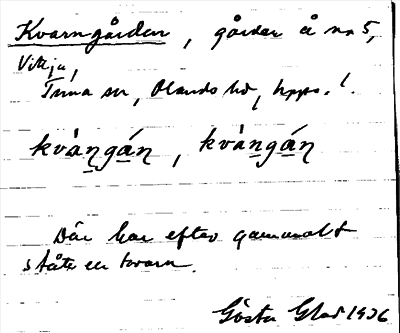 Kvarngården, gården å no 5,
Vittja,
Tuna sn, Olands hd, Upps. l.
kvàṉgáṉ, kvàngán
Där har efter gammalt
stått en kvarn.
Gösta Glad 1936